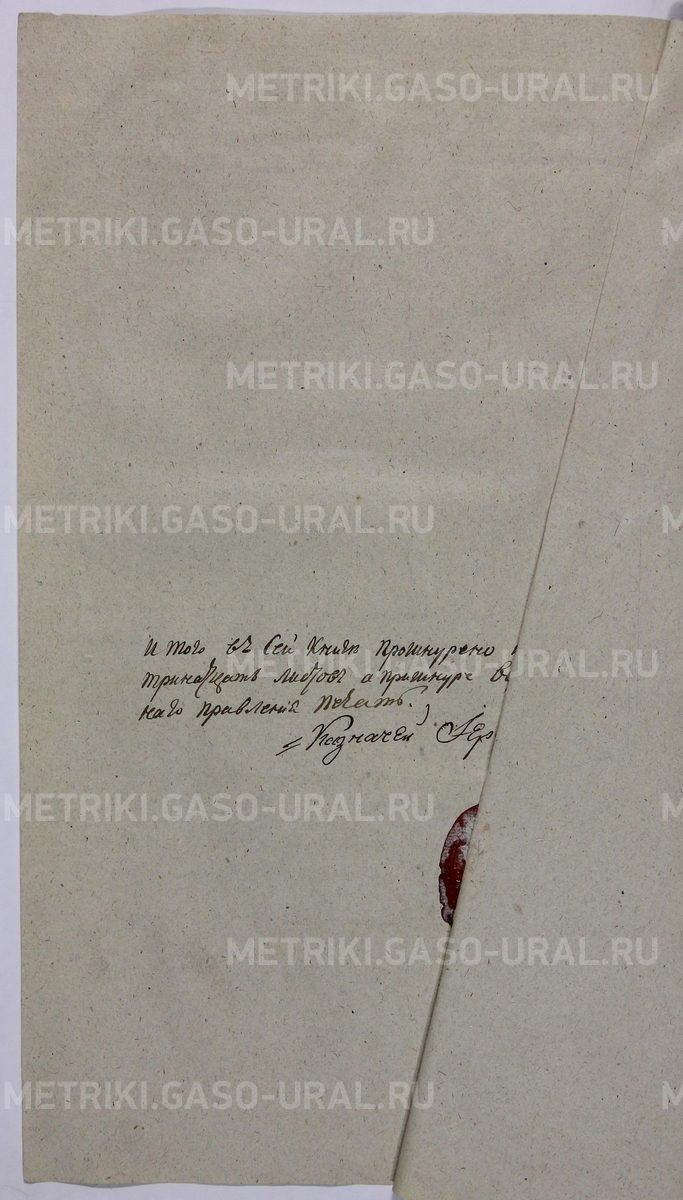 METRIKI.GASO-URAL.RU
METRIKI.GASO-URAL.RU
METRIKI.GASO-URAL.RU
METRIKI.GASO-URAL.RU
И того въ Сей Книгѣ прошнурено
METRIKI.GASO-URAL.RU
тринатцать листовъ а пришнуре въ
наго правленія печать.
Казначей Iер
METRIKI.GASO-URAL.RU
METRIKI.GASO-URAL.RU
METRIKI.GASO-URAL.RU